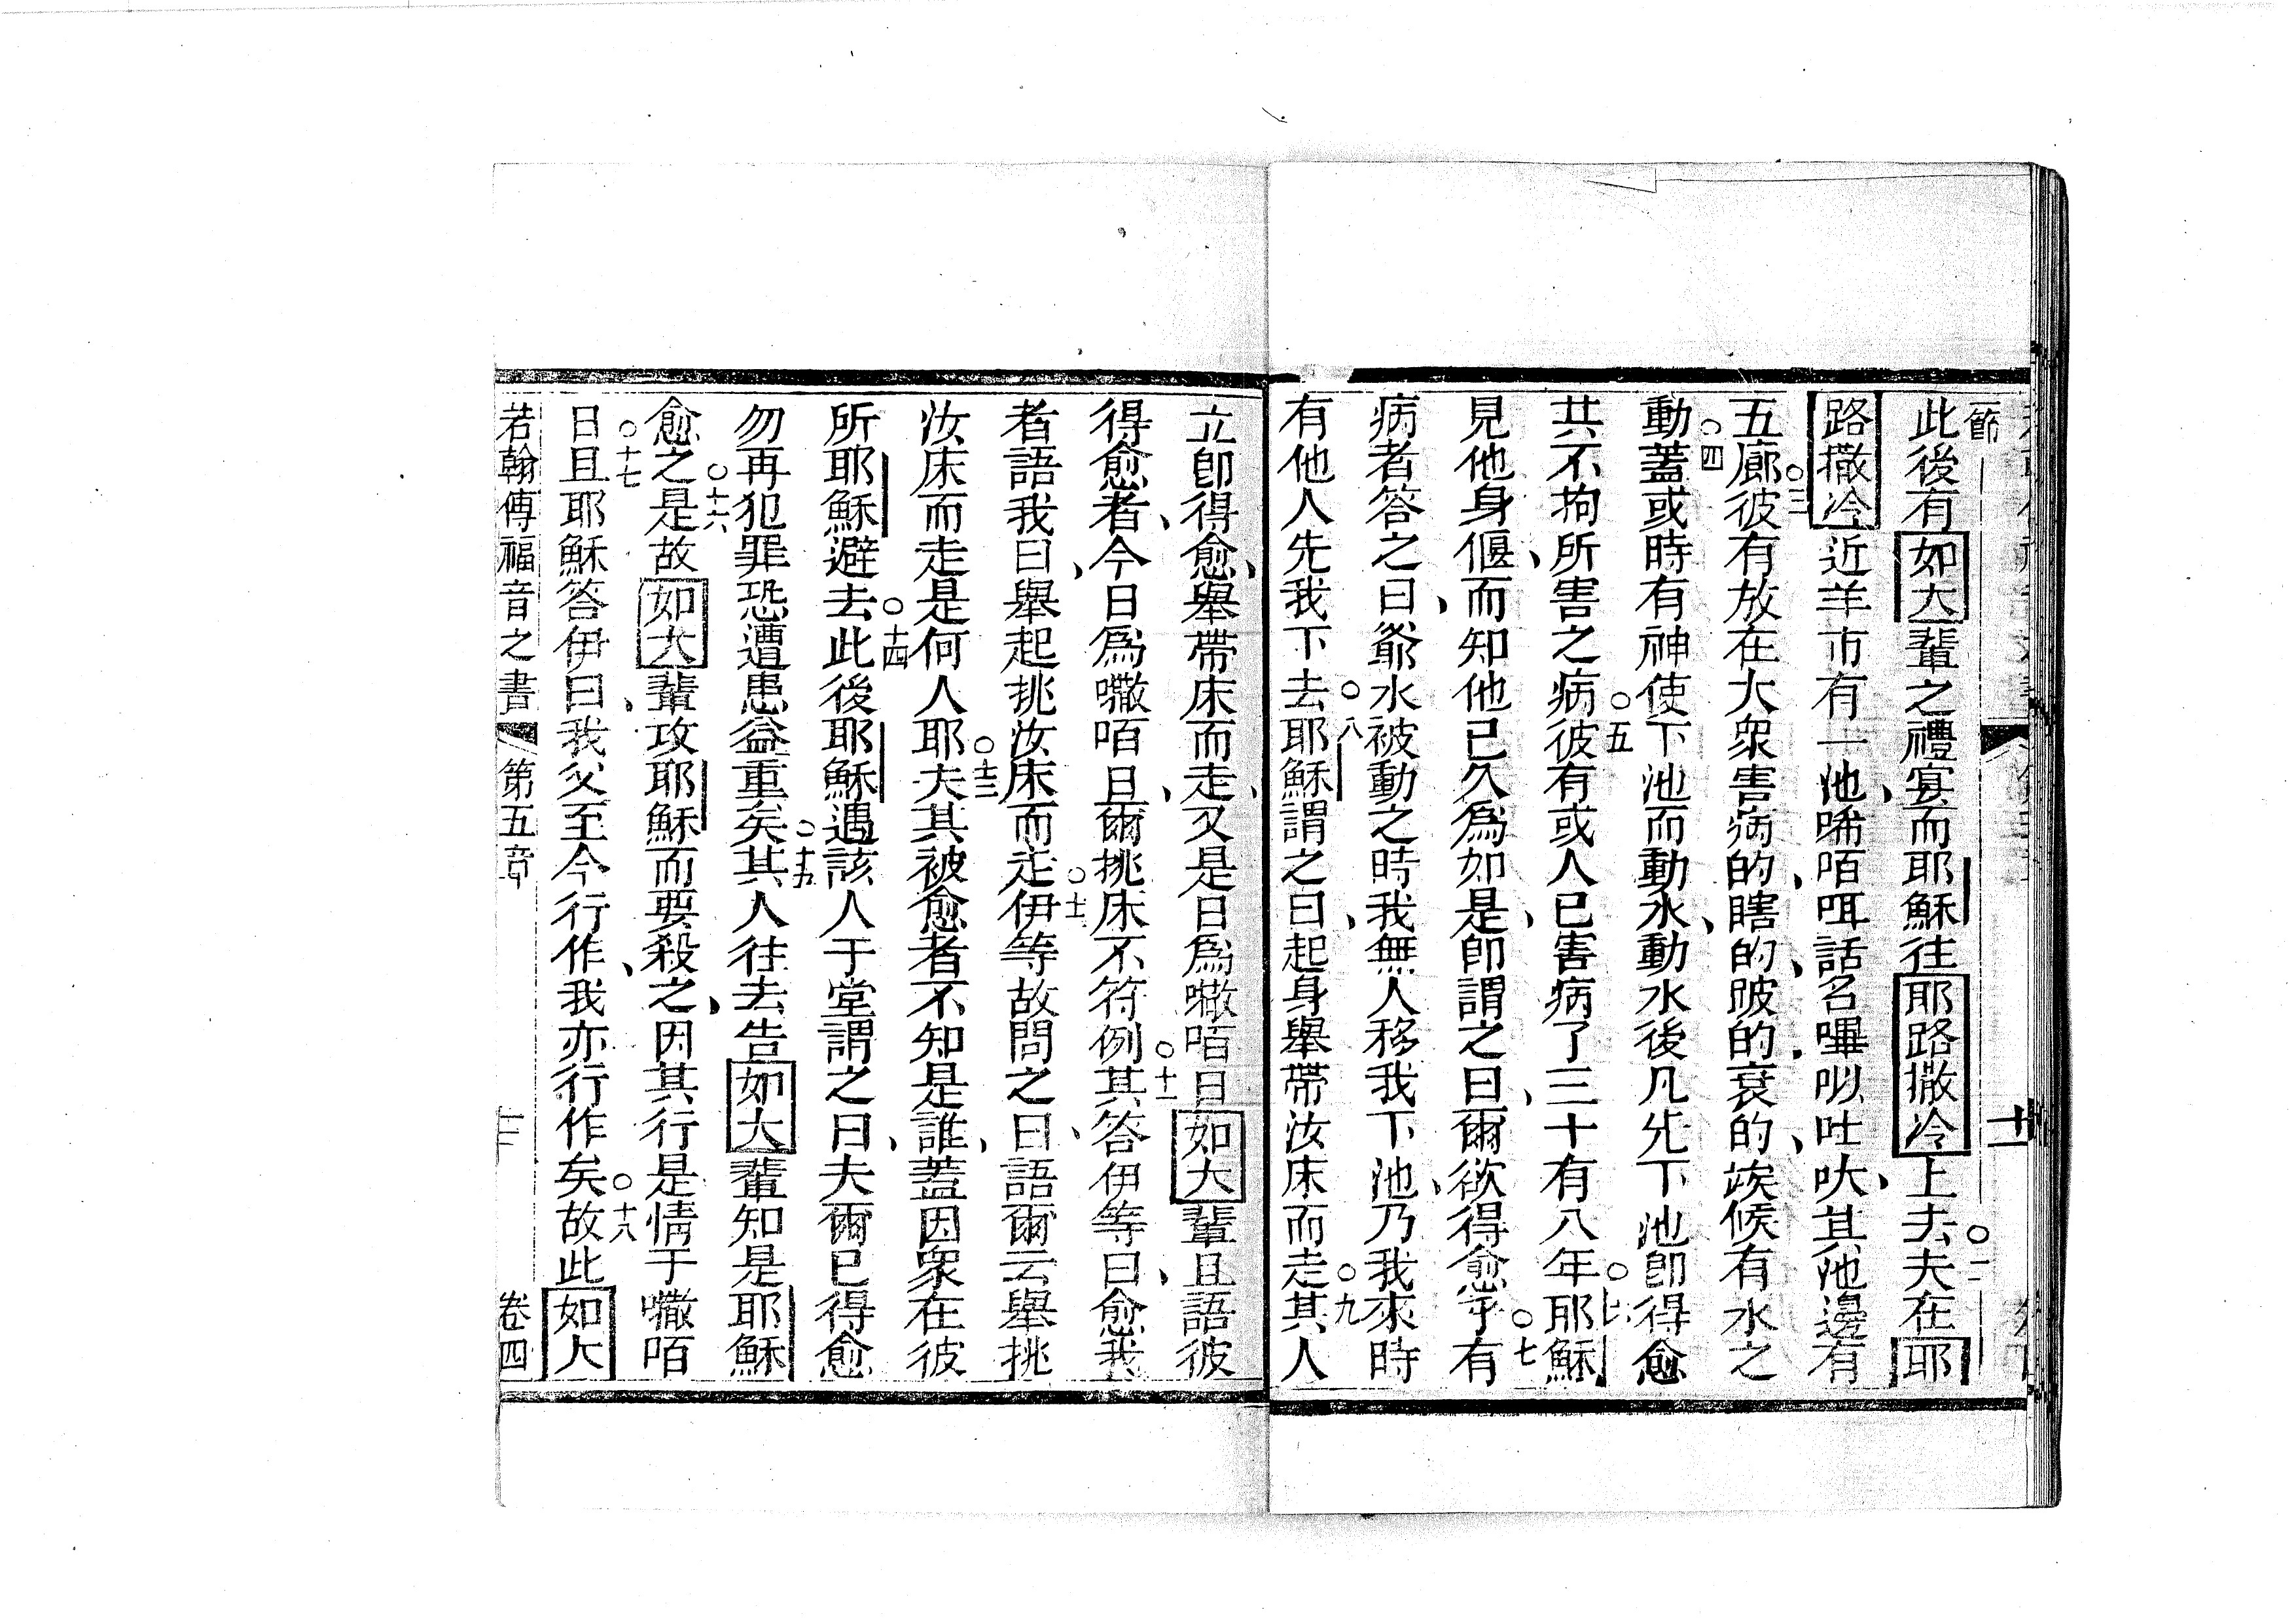 一節
此後有如大輩之禮宴而耶穌往耶路撒冷上去○二夫在耶
路撒冷近羊市有一池、唏咟咡話名嗶㕥吐吠、其池邊有
五廊○三彼有放在大衆害病的、瞎的、跛的、衰的、俟候有水之
動○四蓋或時有神使下池而動水、動水後凡先下池即得愈
其不拘所害之病○五彼有或人已害病了三十有八年○六耶穌
見他身偃、而知他已久爲如是、即謂之曰、爾欲得愈乎○七有
病者答之曰、爺水被動之時我無人移我下池、乃我來時
有他人先我下去○八耶穌謂之曰、起身舉帶汝床而走○九其人
立即得愈、舉帶床而走、又是日爲𡅏咟日如大輩且語彼
得愈者、今日爲𡅏咟日、爾挑床不符例○十一其答伊等曰、愈我
者語我曰、舉起挑汝床而走○十二伊等故問之曰、語爾云舉挑
汝床而走是何人耶○十三夫其被愈者不知是誰、蓋因衆在彼
所耶穌避去○十四此後耶穌遇該人于堂謂之曰、夫爾已得愈
勿再犯罪恐遭患益重矣○十五其人往去告如大輩知是耶穌
愈之○十六是故如大輩攻耶穌而要殺之、因其行是情于𡅏咟
日○十七且耶穌答伊曰、我父至今行作、我亦行作矣○十八故此如大
若翰傳福音之書 第五章 卷四